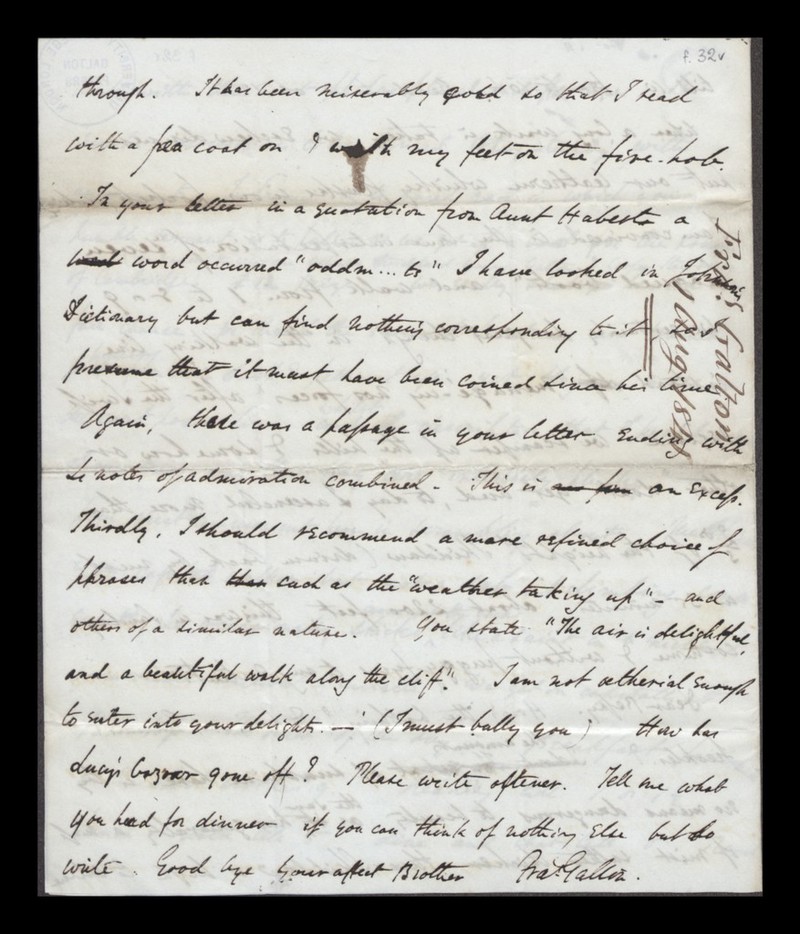 f. 32v
through. It has been miserably cold so that I read
with a pea coat on & with my feet on the fire-hob.
In your letter in a quotation from Aunt Habests a
word occurred "oddm... ts" I have looked in Johnson's
Dictionary but can find nothing corresponding to it, so I
presume that it must have been coined since his time
Again, there was a passage in your letter ending with
six notes of admiration combined - This is an excess.
Thirdly, I should recommend a more refined choice of
phrases than such as the "weather taking up" - and
others of a similar nature. You state "The air is delightful,
and a beautiful walk along the clif". I am not aetherial enough
to enter into your delights. — (I must bully you) How has
Lucy's bazaar gone off? Please write oftener. Tell me what
you had for dinner if you can think of nothing else but do
write. Good bye your affect Brother Fra. Galton.
Francis Galton